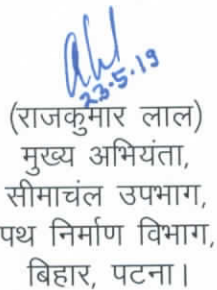 23.5.19
(राजकुमार लाल)
मुख्य अभियंता,
सीमाचंल उपभाग,
पथ निर्माण विभाग,
बिहार, पटना।